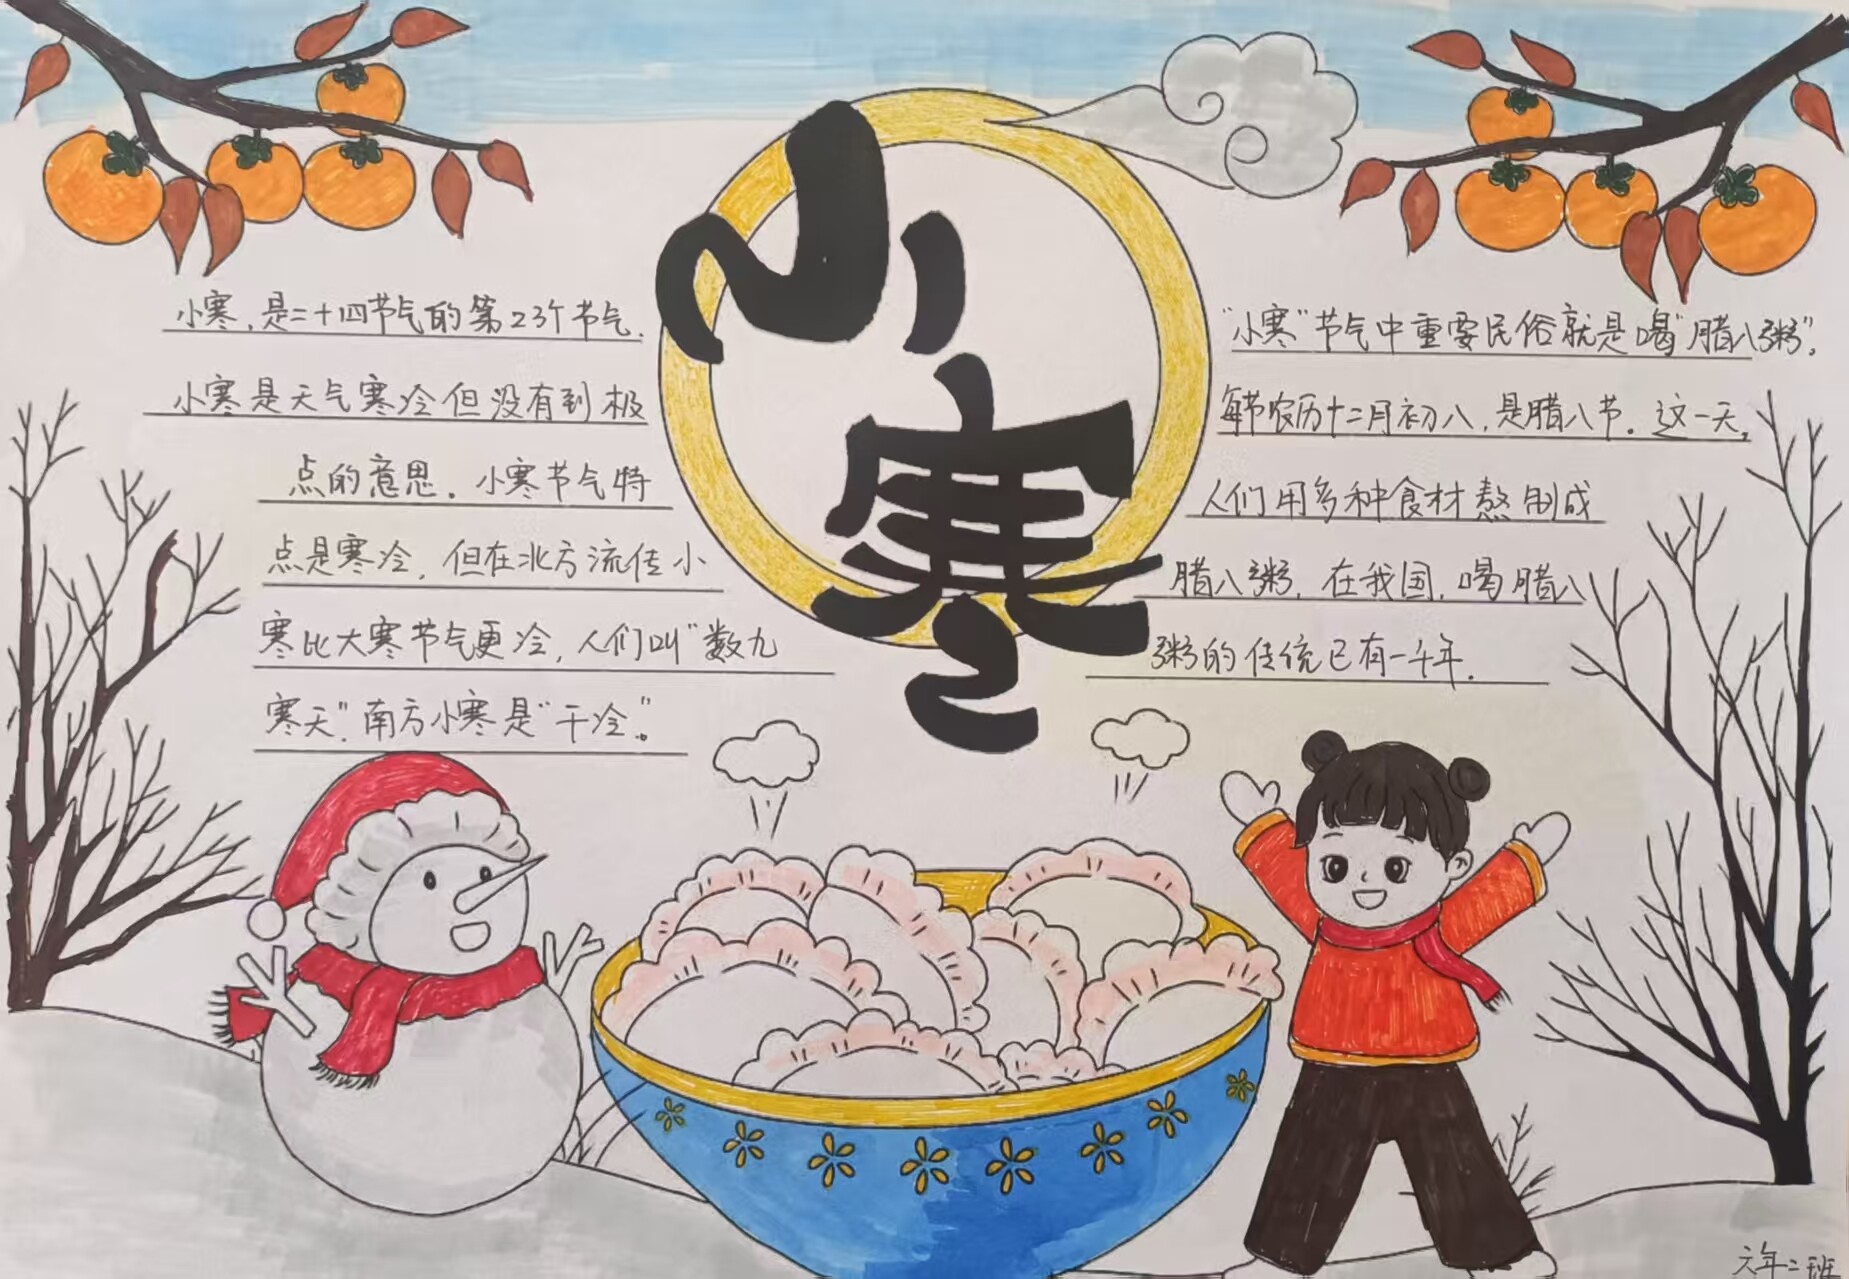 小寒
小寒,是二十四节气的第23个节气.
小寒是天气寒冷但没有到极
点的意思。小寒节气特
点是寒冷,但在北方流传小
寒比大寒节气更冷,人们叫"数九
寒天",南方小寒是"干冷"。
"小寒"节气中重要民俗就是喝"腊八粥".
每节农历十二月初八,是腊八节。这一天,
人们用多种食材熬制成
腊八粥,在我国,喝腊八
粥的传统已有一千年.
六年二班